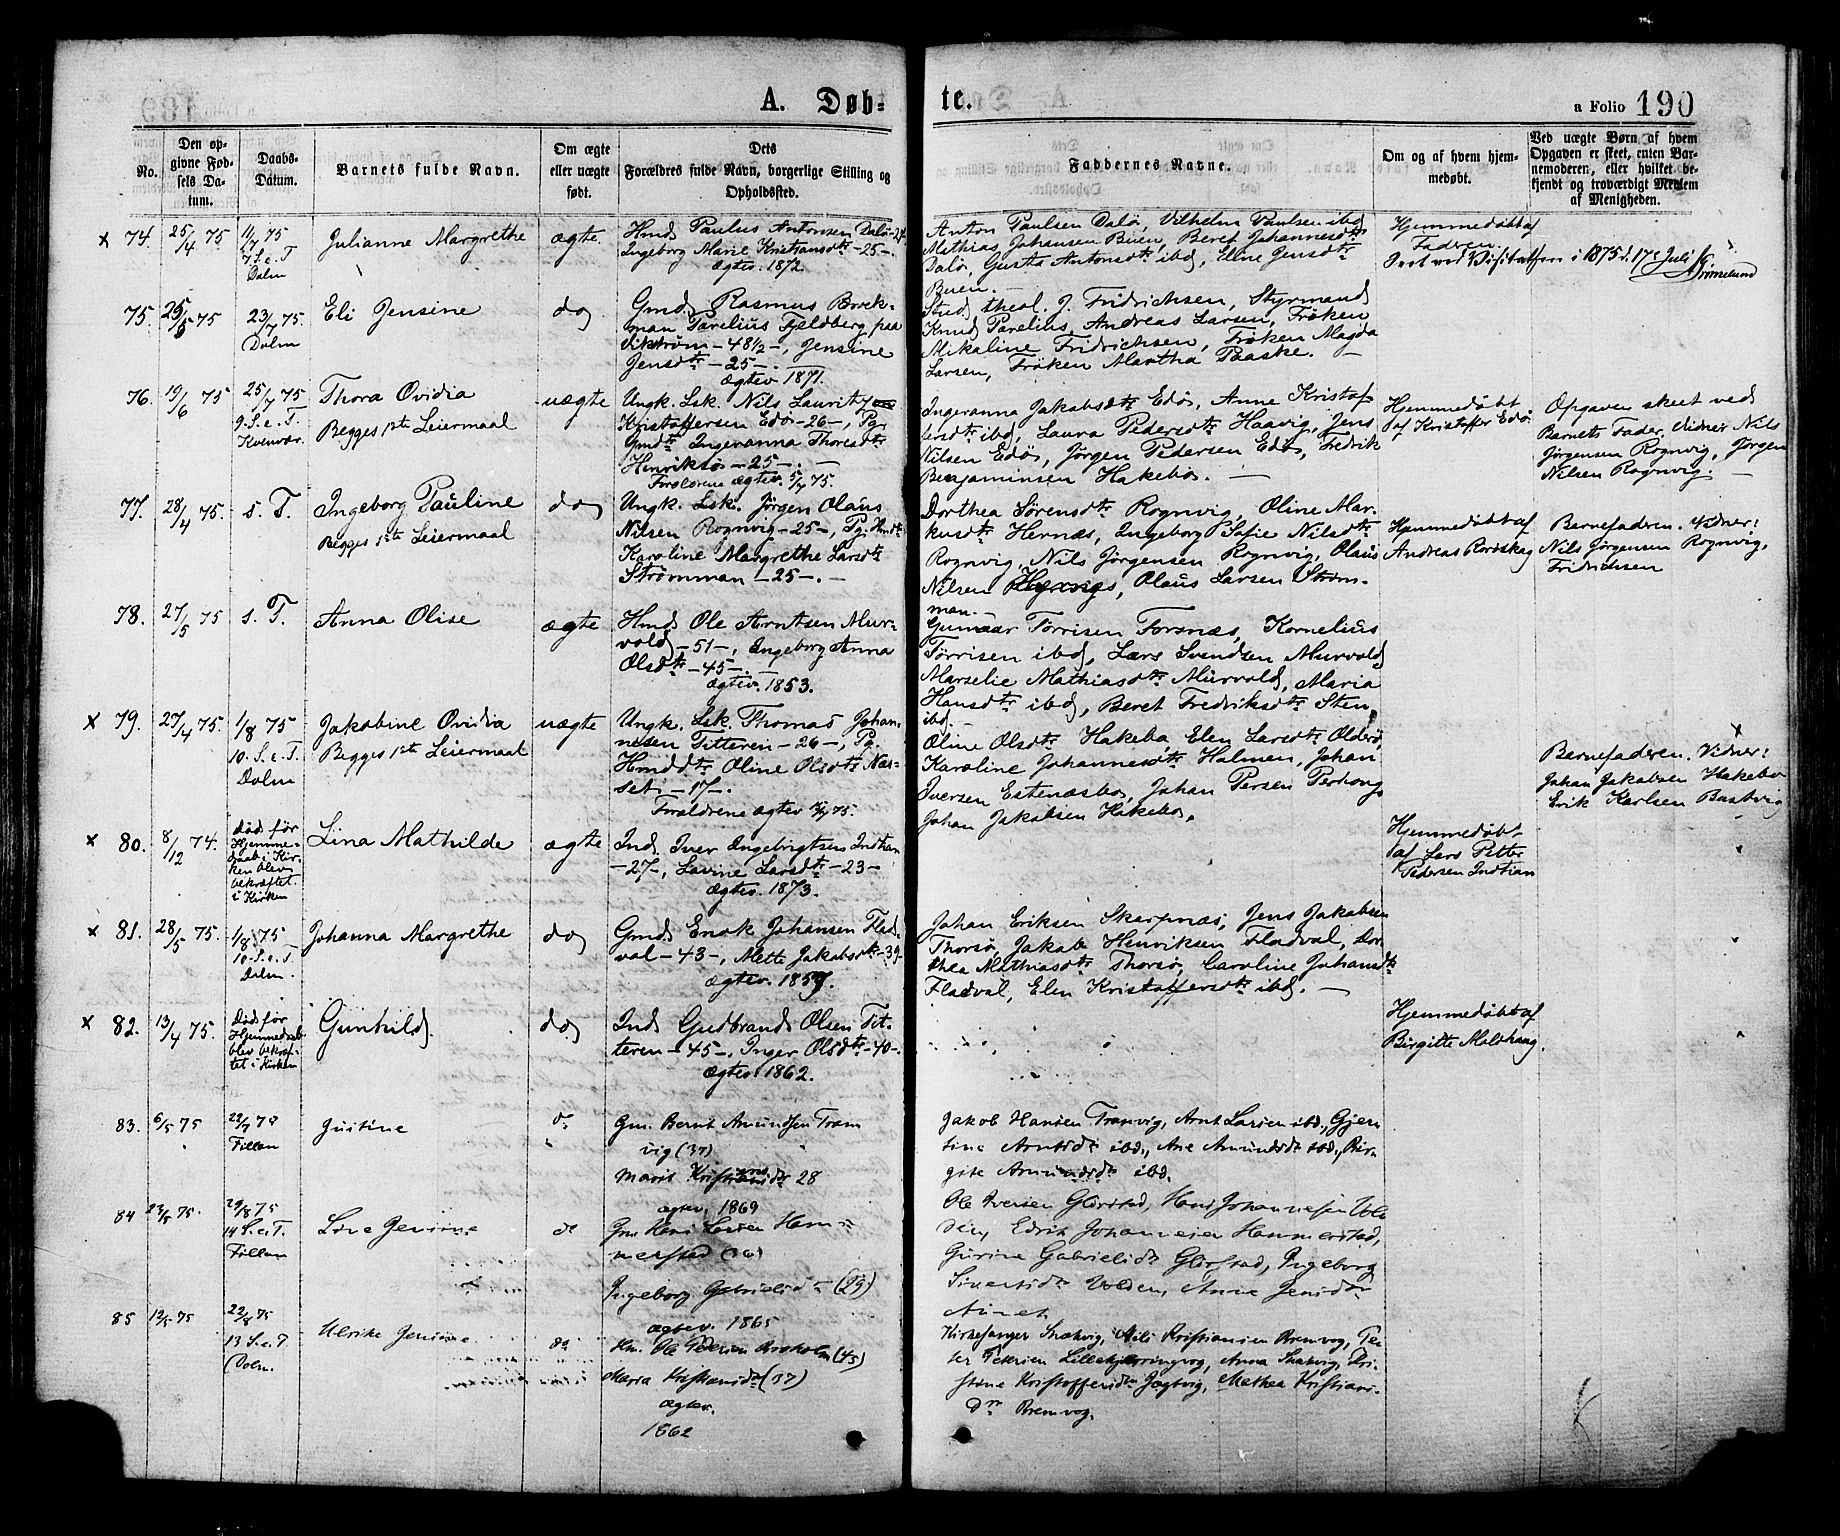 A. Døb-
te.
a Folio 190
No.
Den op-
givne Fød-
sels Da-
tum.
Daabs-
Datum.
Barnets fulde Navn.
Om ægte
eller uægte
født.
Dets
Forældres fulde Navn, borgerlige Stilling og
Opholdssted.
Faddernes Navne.
Om og af hvem hjem-
medøbt.
Ved uægte Børn af hvem
Opgaven er skeet, enten Bar-
nemoderen, eller hvilket be-
kjendt og troværdigt Medlem
af Menigheden.
x 74. 25/4 75
11/7 75
7 S. e. T.
Dolm
Julianne Margrethe
ægte.
Hmd Paulus Antonsen Dalø-27
Ingeborg Marie Kristiansdtr -25-.
Ægtev. 1872.
Anton Paulsen Dalø, Vilhelm Paulsen ibd
Mathias Johansen Buen, Beret Johannesdtr
Dalø, Gusta Antonsdtr ibd, Eline Jensdtr
Buen. -
Hjemmedøbt af
Faderen.
Seet ved Visitatsen i 1875 d. 17de Juli
75. 25/5 75
23/7 75.
Dolm
Eli Jensine
do
Gmd. Rasmus Brock-
man Parelius Fjeldberg paa
Vikstrøm -48½-, Jensine
Jensdtr -25-.
Ægtev 1871.
Stud. theol. J. Fridrichsen, Styrmand
Knud Parelius, Andreas Larsen, Frøken
Mikaline Fridrichsen, Frøken Magda
Larsen, Frøken Martha Paaske. -
76. 19/6 75
25/7 75
9. S. e. T.
Kvenvær.
Thora Ovidia
Begges 1ste Leiermaal
uægte
Ungk. Lsk. Nils Lauritz
Kristoffersen Edø -26-, Pg.
Gmdtr Ingeranna Thoresdtr
Henriksø -25-. -
Forældrene ægtev. 5/7 75.
Ingeranna Jakobsdtr Edø, Anne Kristof
fersdtr ibd, Laura Pedersdtr Haavig, Jens
Nilsen Edø, Jørgen Pedersen Edø, Fredrik
Benjaminsen Hakebo. -
Hjemmedøbt
af Kristoffer Edø
Opgaven skeet ved
Barnets Fader. Vidner Nils
Jørgensen Rognvig, Jørgen
Nilsen Rognvig. -
77. 28/4 75.
s. T.
Ingeborg Pauline
Begges 1ste Leiermaal
do
Ungk. Lsk. Jørgen Olaus
Nilsen Rognvig -25-, Pg. Hmdtr
Karoline Margrethe Larsdtr
Strømman -25-. -
Dorthea Sørensdtr Rognvig, Oline Mar-
kusdtr Hernæs, Ingeborg Sofie Nilsdtr
Rognvig, Nils Jørgensen Rognvig, Olaus
Nilsen, Olaus Larsen Strøm-
man. -
Hjemmedøbt af
Andreas Rorøskag
Barnefaderen. Vidner:
Nils Jørgensen Rognvig,
Fridrichsen
78. 27/5 75
s. T.
Anna Olise
ægte
Hmd Ole Arntsen Mur-
vold -51-, Ingeborg Anna
Olsdtr -45-. -
Ægtev. 1853.
Gunnar Tørrisen Forsnæs, Kornelius
Tørrisen ibd, Lars Svendsen Murvold,
Marselie Mathiasdtr Murvold, Maria
Hansdtr ibd, Beret Fredriksdtr Sten
ibd. -
x 79. 27/4 75.
1/8 75
10. S. e. T.
Dolm
Jakobine Ovidia
Begges 1ste Leiermaal
uægte
Ungk. Lsk. Thomas Johan-
nesen Titteren -26-, Pg.
Hmddtr Oline Olsdtr Næs-
set -17-.
Forældrene ægtev 75.
Oline Olsdtr Hakebo, Elen Larsdtr Olderø,
Karoline Johannesdtr Holmen, Johan
Iversen Estenæsbo, Johan Persen Perhaug,
Johan Jakobsen Hakebo.
Barnefaderen. Vidner:
Johan Jakobsen Hakebo
Erik Karlsen Bustvig
x 80. 8/12 74.
Død før
Hjemme-
daab i Kir-
ken blev
bekræftet.
i Kirken
Lina Mathilde
ægte
Ind. Iver Ingebrigtsen Indtian
-27-, Lavine Larsdtr -23-
Ægtev. 1873.
Hjemmedøbt
af Lars Petter
Pedersen Indtian
x 81. 28/5 75.
1/8 75
10. S. e. T.
Dolm.
Johanna Margrethe
do
Gmd. Enok Johansen Flad-
val -43-, Mette Jakobsdtr -39-
Ægtev. 1857.
Johan Eriksen Skarpnæs, Jens Jakobsen
Thorsø, Jakob Henriksen Fladval, Dor-
thea Mathiasdtr Thorsø, Caroline Johansdtr
Fladval, Elen Kristoffersdtr ibd. -
x 82. 13/4 75.
Død før
Hjemmedaab
blev bekræf-
tet i Kirken
Gunhild.
do
Ind Gudbrand Olsen Tit-
teren -45-, Inger Olsdtr -40-.
Ægtev. 1862.
Hjemmedøbt af
Birgitte Malvhaug.
83. 6/5 75
22/7 75
Fillan
Justine
do
Gm. Bernt Amundsen Tran
vig (37)
Marit Kristiansdtr 28
ægtev. 1869
Jakob Hansen Tranvig, Arnt Larsen ibd., Gjer-
tine Arntsdtr ibd., Ane Amundsdtr ibd., Bir-
gite Amundsdtr ibd.
84 23/5 75.
29/8 75
14 S. e. T.
Fillan
Line Jensine
do
Gm. Hans Larsen Ham-
merstad (36)
Ingeborg Gabrielsdtr (29)
ægtev. 1865
Ole Iversen Glørstad, Hans Johannesen Vol-
den, Edrik Johannesen Hammerstad,
Gurine Gabrielsdtr Glørstad, Ingeborg
Sivertsdtr Volden, Anne Jensdtr
85 12/5 75
22/8 75
13 S. e. T.
Dolm.
Ulrike Jensine
do
Hm. Ole Pedersen Aroholm (43)
Maria Kristiansdtr (37)
ægtev.
1862
Kirkesanger Snekvig, Nils Kristiansen Bremvog, Pe-
ter Petersen Lillekjerringvog, Anna Snekvig, Kri-
stine Kristoffersdtr Jægtvig, Mathea Kristians-
dtr Bremvog.